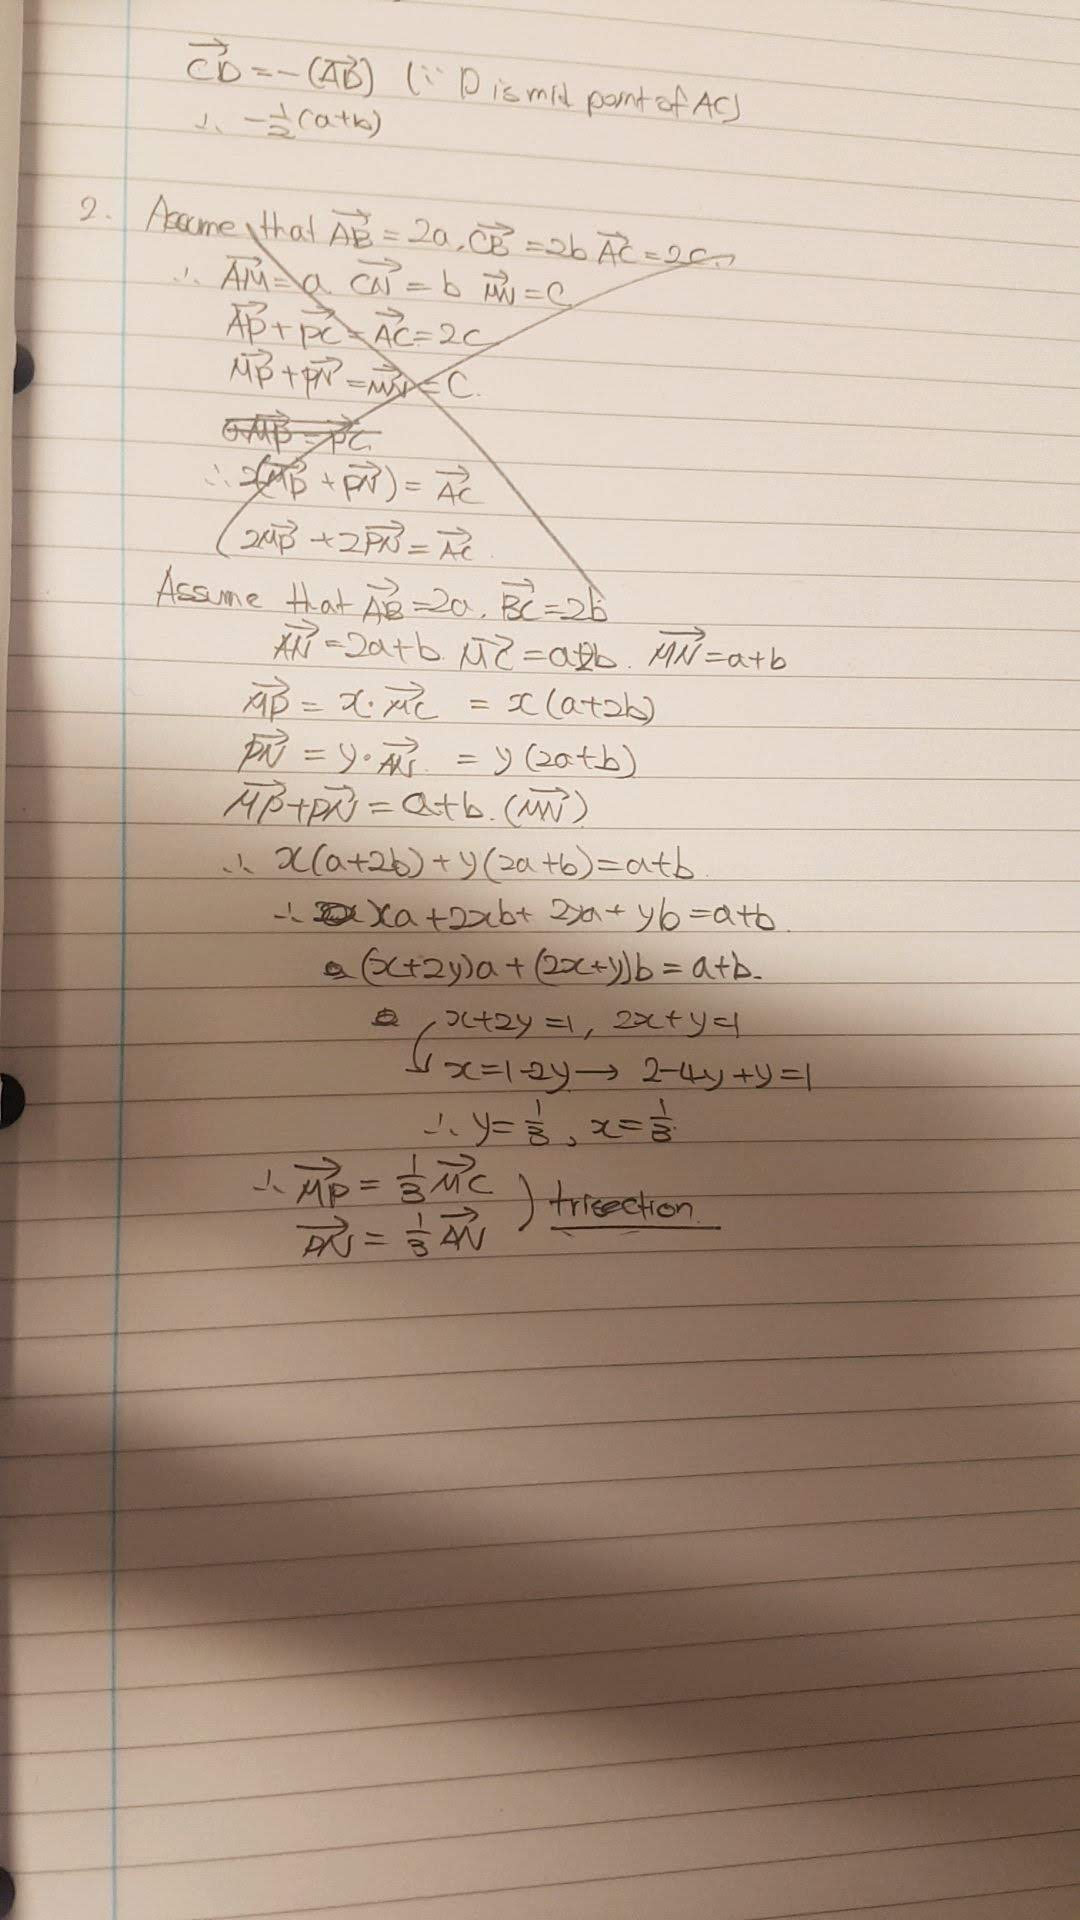 CD = -(AD) (∵ D is mid point of AC)
∴ -1/2(a+b)
2. Assume that AB = 2a, CB = 2b AC = 2c.
∴ AM = a CN = b MN = C
AP + PC = AC = 2C
MP + PN = MN = C.
∴ 2(MP + PN) = AC
2MP + 2PN = AC
Assume that AB = 2a. BC = 2b
AN = 2a+b. MC = a+2b. MN = a+b
MP = x·MC = x(a+2b)
PN = y·AN = y(2a+b)
MP+PN = a+b. (MN)
∴ x(a+2b)+y(2a+b)=a+b
∴ xa+2xb+ 2ya+yb=a+b.
(x+2y)a+(2x+y)b=a+b.
x+2y=1, 2x+y=1
x=1-2y→ 2-4y+y=1
∴ y=1/3, x=1/3
∴ MP = 1/3 MC
PN = 1/3 AN ) trisection